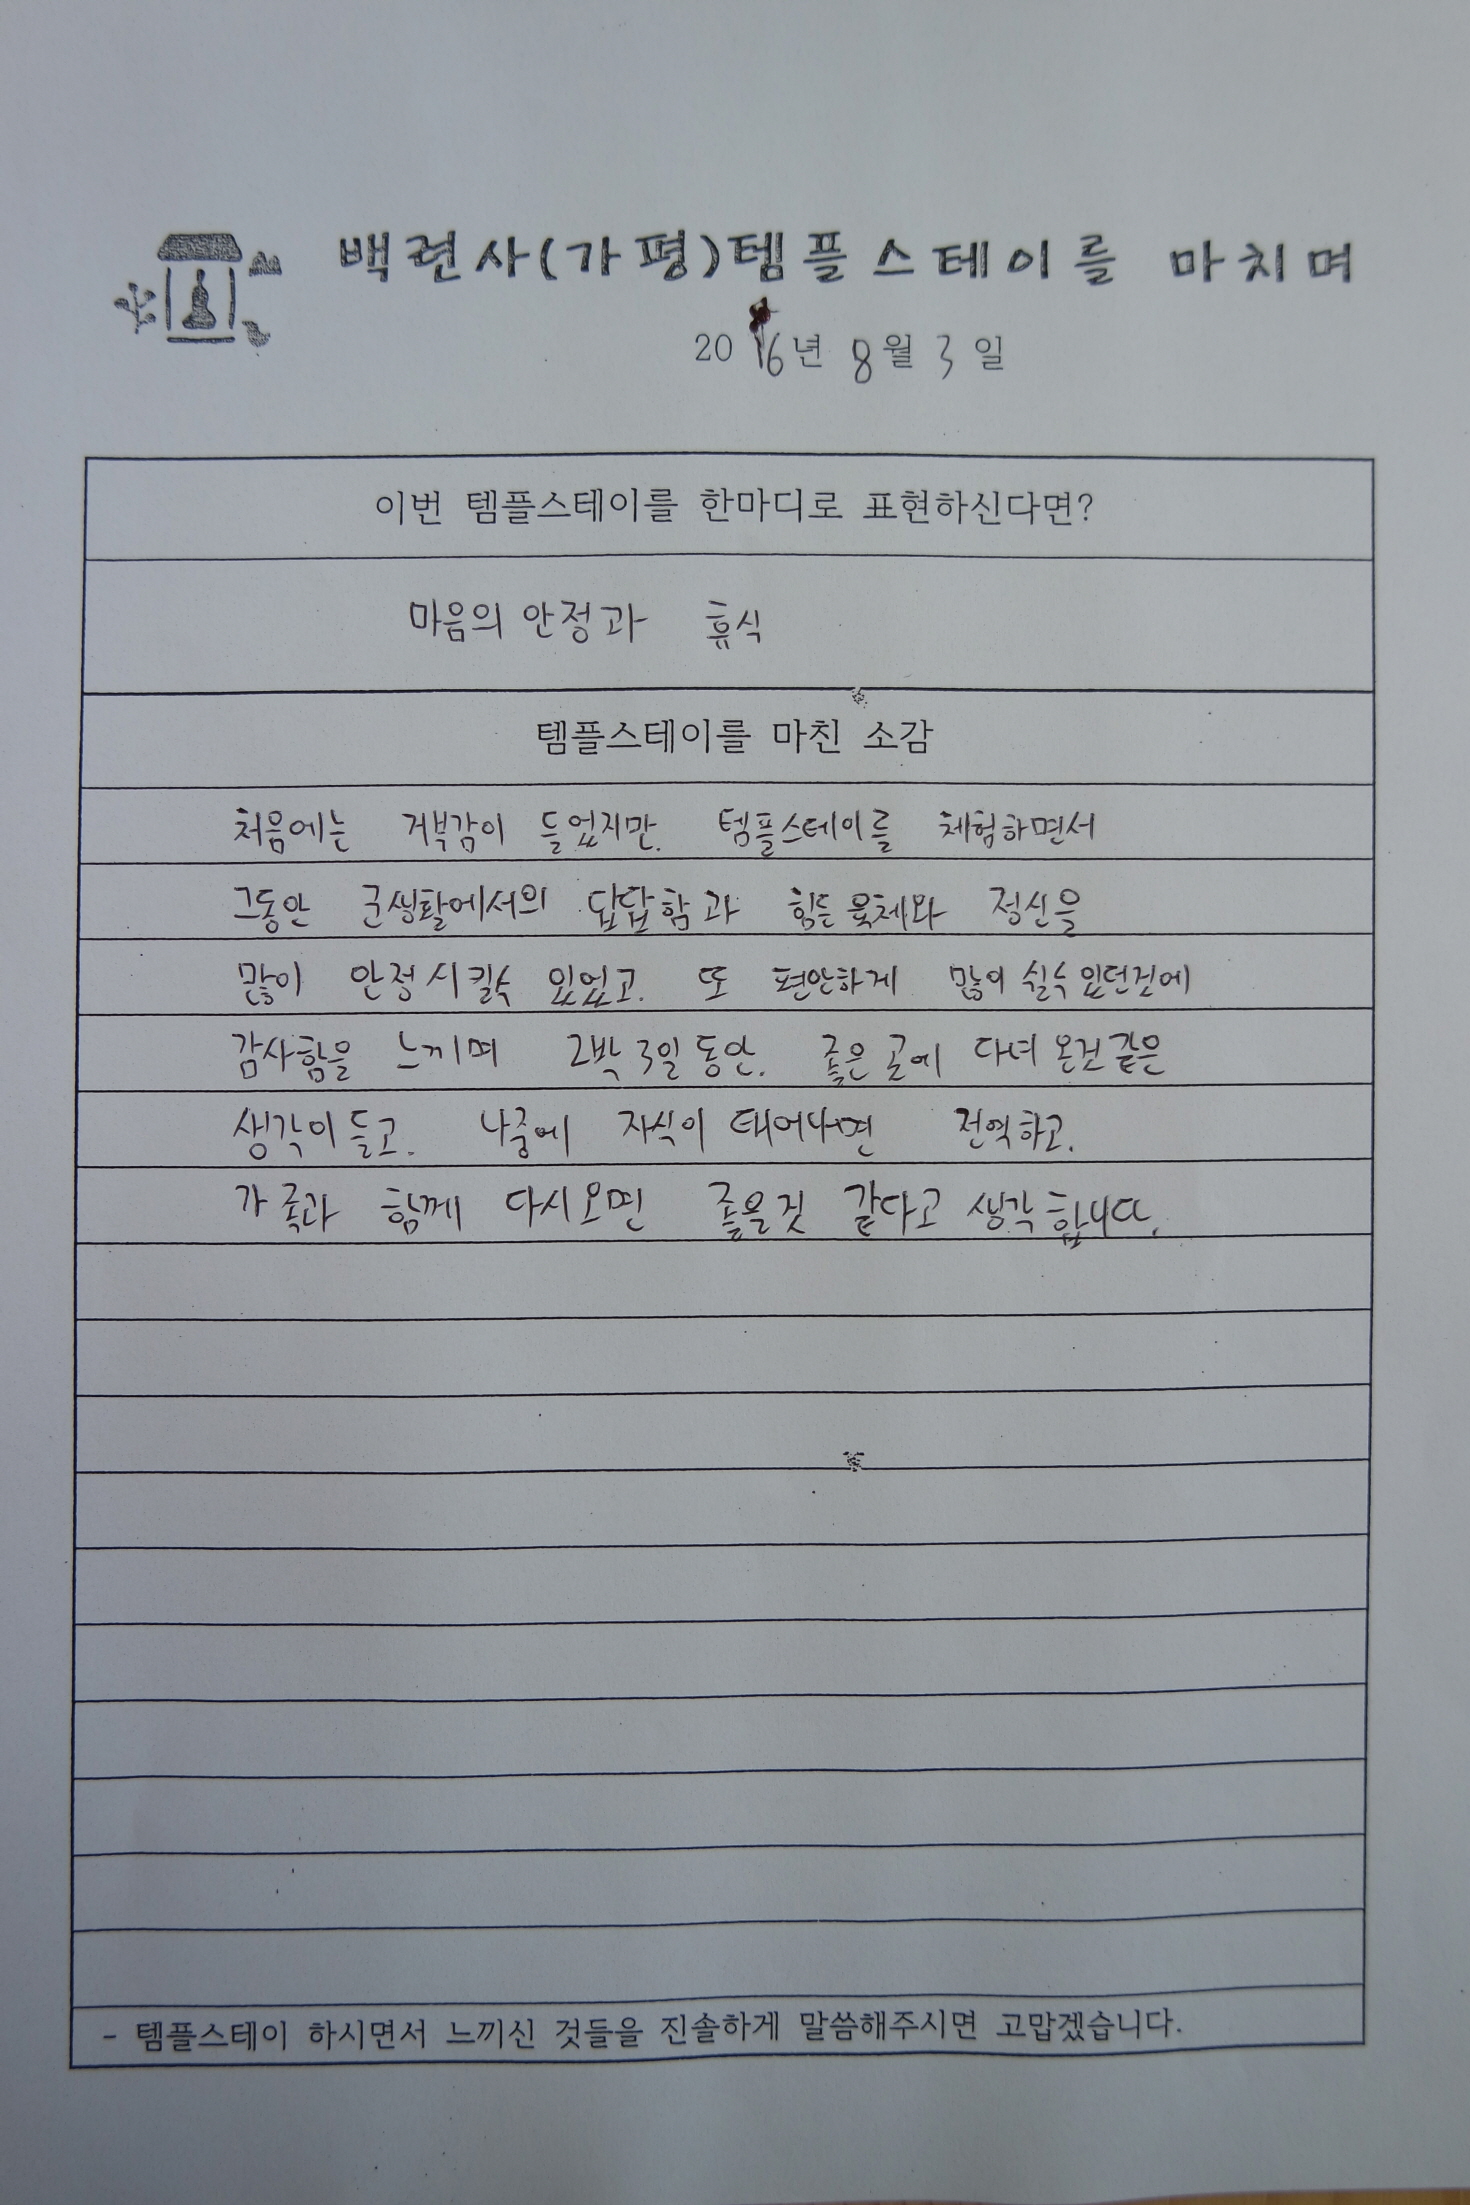 백련사(가평)템플스테이를 마치며
2016년 8월 3일
이번 템플스테이를 한마디로 표현하신다면?
마음의 안정과 휴식
템플스테이를 마친 소감
처음에는 거부감이 들었지만. 템플스테이를 체험하면서
그동안 군생활에서의 답답함과 힘든 육체와 정신을
많이 안정시킬수 있었고. 또 편안하게 많이 쉴수 있던것에
감사함을 느끼며 2박 3일 동안. 좋은 곳에 다녀 온것 같은
생각이 들고. 나중에 자식이 태어나면 전역하고.
가족과 함께 다시오면 좋을것 같다고 생각합니다.
- 템플스테이 하시면서 느끼신 것들을 진솔하게 말씀해주시면 고맙겠습니다.